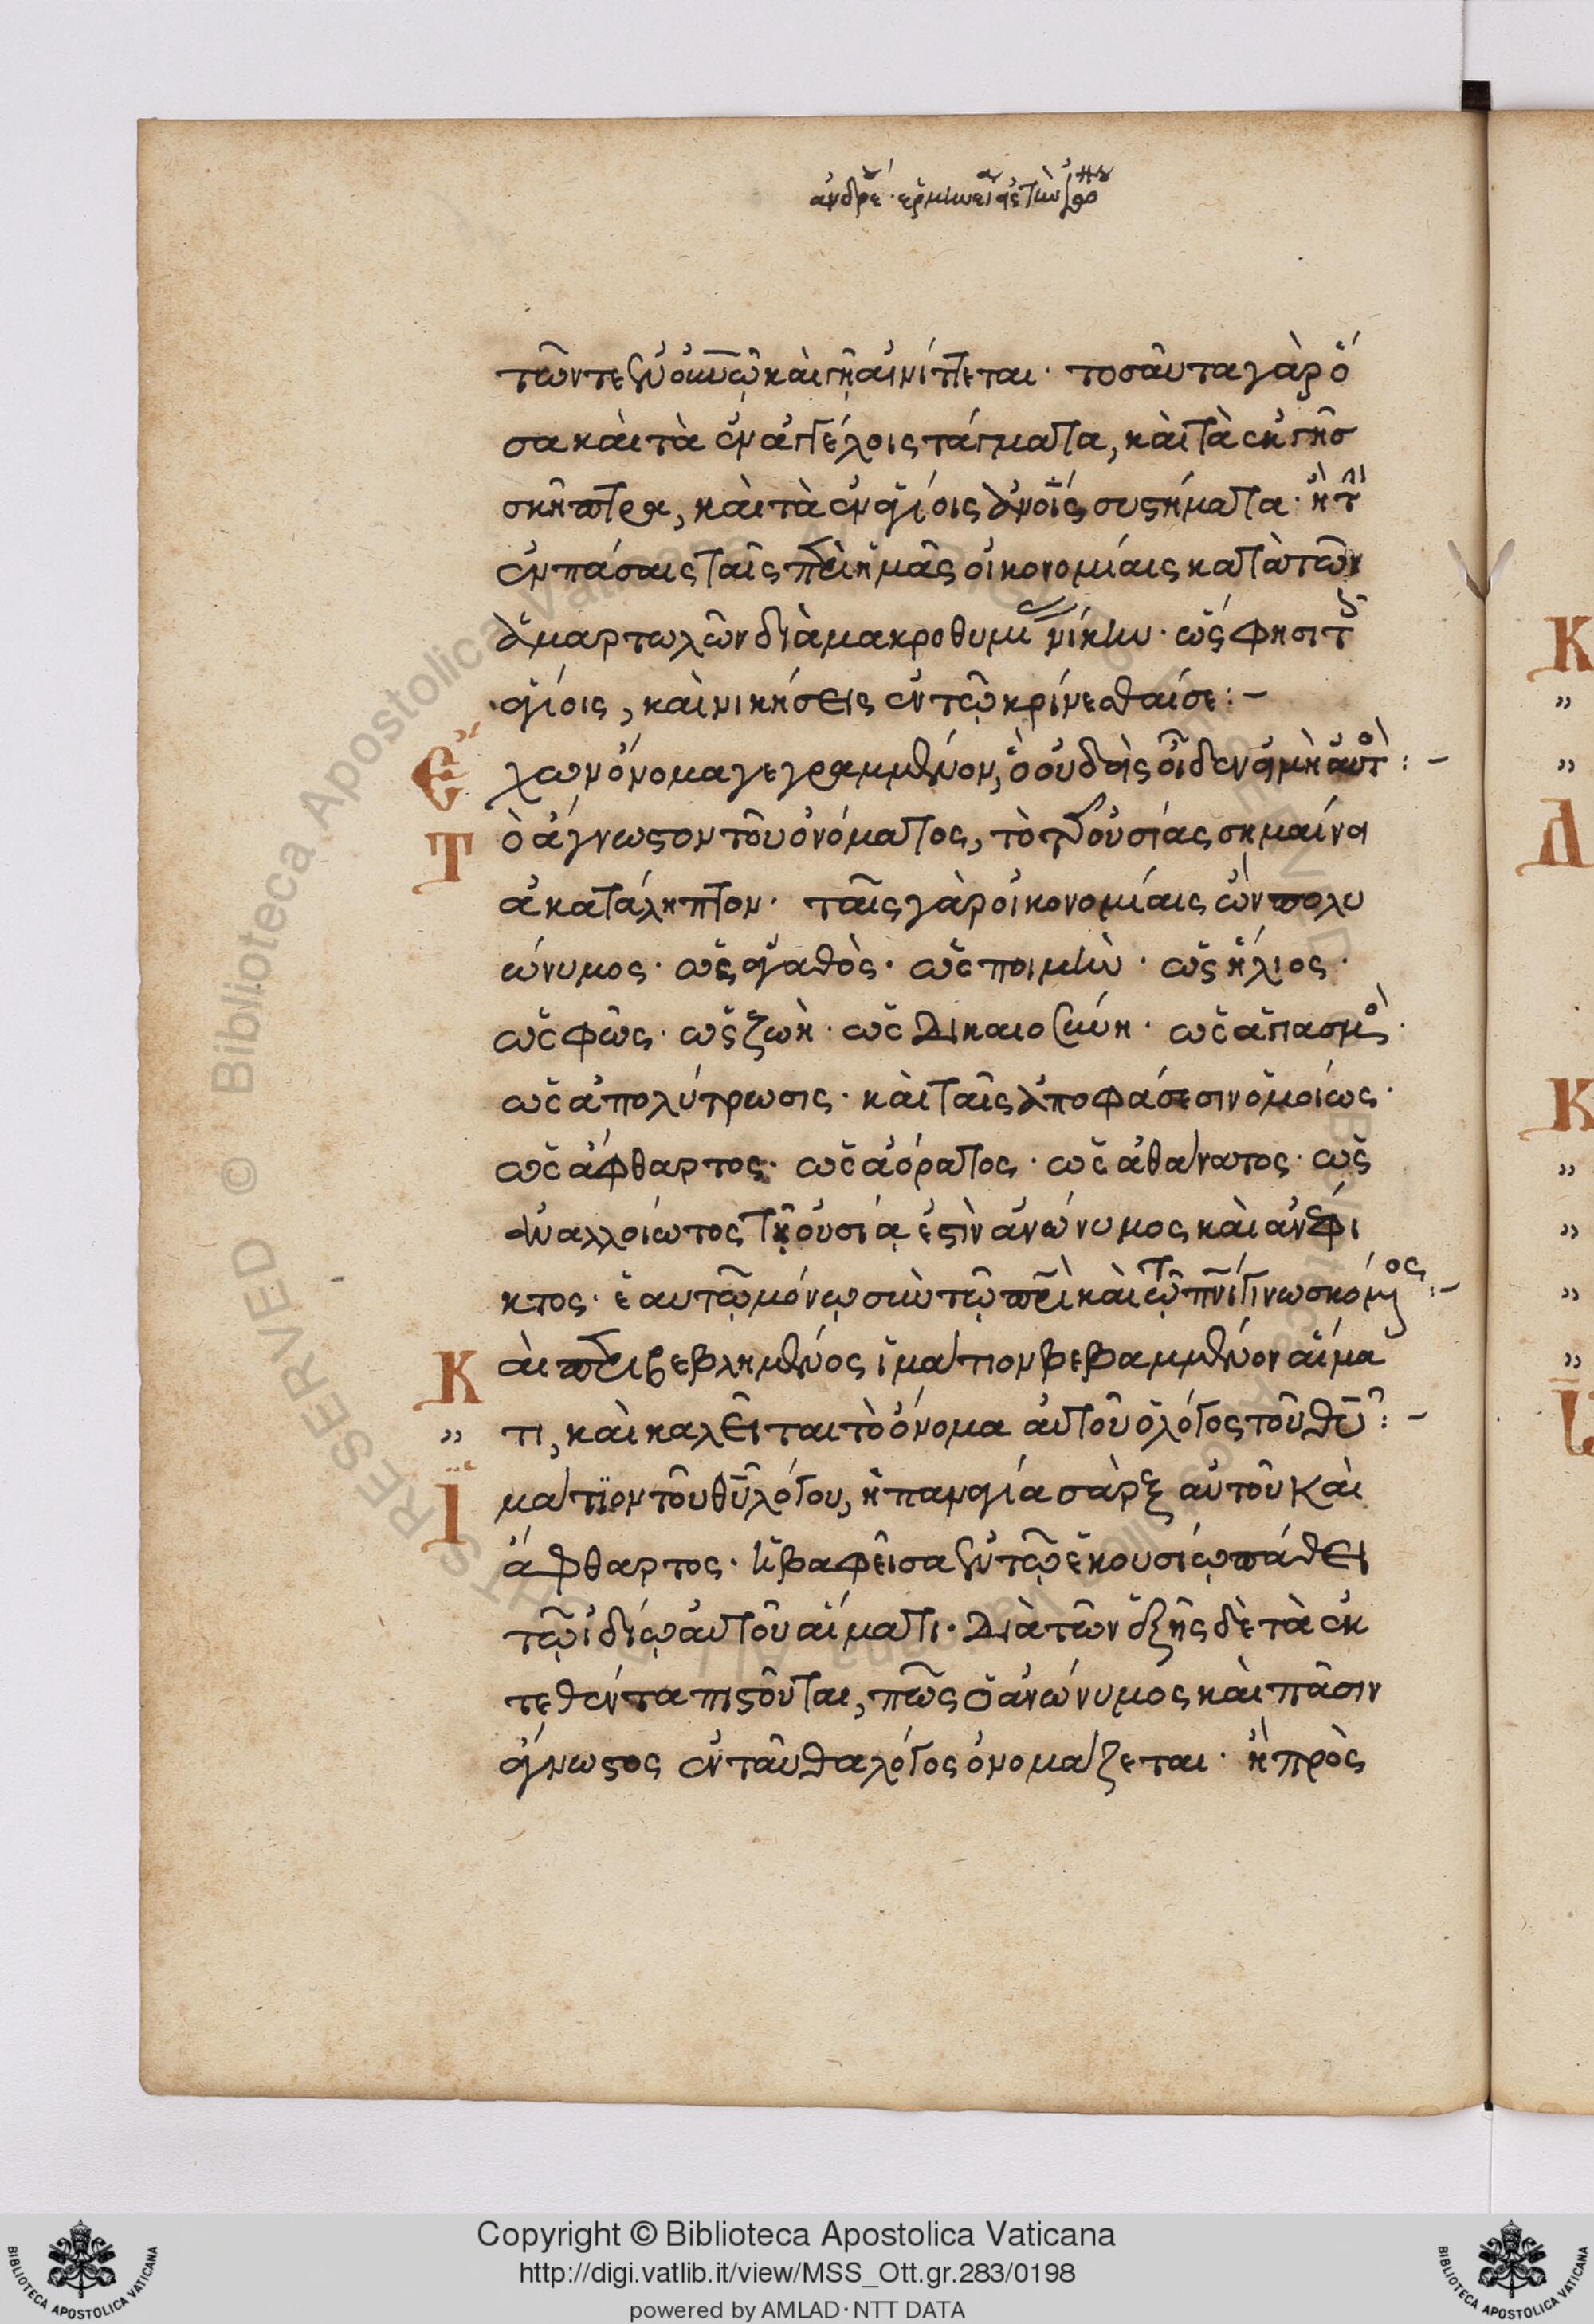 τῶν τε ἐν οὐνῷ καὶ γῇ αἰνίττεται· τοσαῦτα γὰρ ὅ
σα καὶ τὰ ἐν ἀγγέλοις τάγματα, καὶ τὰ ἐν γῇ
σκῆπτρα, καὶ τὰ ἐν ἁγίοις ἀνοῖς συστήματα· ἢ τὴν
ἐν πάσαις ταῖς περὶ ἡμᾶς οἰκονομίαις κατὰ τῶν
ἁμαρτωλῶν διὰ μακροθυμίας νίκην· ὥς φησι τοῖς
ἁγίοις, καὶ νικήσεις ἐν τῷ κρίνεσθαί σε:–
Ἔχων ὄνομα γεγραμμένον, ὃ οὐδεὶς οἶδεν εἰ μὴ αὐτός:–
Τὸ ἄγνωστον τοῦ ὀνόματος, τὸ τῆς οὐσίας σημαίνει
ἀκατάληπτον· ταῖς γὰρ οἰκονομίαις ὢν πολυ
ώνυμος· ὡς ἀγαθὸς· ὡς ποιμὴν· ὡς ἥλιος·
ὡς φῶς· ὡς ζωὴ· ὡς δικαιοσύνη· ὡς ἁγιασμὸς·
ὡς ἀπολύτρωσις· καὶ ταῖς ἀποφάσεσιν ὁμοίως·
ὡς ἄφθαρτος· ὡς ἀόρατος· ὡς ἀθάνατος· ὡς
ἀναλλοίωτος τῇ οὐσίᾳ ἐστὶν ἀνώνυμος καὶ ἀνέφι
κτος· ἑαυτῷ μόνῳ σὺν τῷ πρὶ καὶ τῷ πνὶ γινωσκόμενος:–
Καὶ περιβεβλημένος ἱμάτιον βεβαμμένον αἵμα
„ τι, καὶ καλεῖται τὸ ὄνομα αὐτοῦ ὁ λόγος τοῦ θῦ:–
Ἱμάτιον τοῦ θῦ λόγου, ἡ παναγία σὰρξ αὐτοῦ καὶ
ἄφθαρτος· ἡ βαφεῖσα ἐν τῷ ἑκουσίῳ πάθει
τῷ ἰδίῳ αὐτοῦ αἵματι· Διὰ τῶν ἑξῆς δὲ τὰ ἐκ
τεθέντα πιστοῦνται, πῶς ὁ ἀνώνυμος καὶ πᾶσιν
ἄγνωστος ἐνταῦθα λόγος ὀνομάζεται· ἢ πρὸς
Κ
„
„
Δ
Κ
„
„
„
„
Copyright © Biblioteca Apostolica Vaticana
http://digi.vatlib.it/view/MSS_Ott.gr.283/0198
powered by AMLAD · NTT DATA
BIBLIOTECA APOSTOLICA VATICANA
BIBLIOTECA APOSTOLICA VATICANA